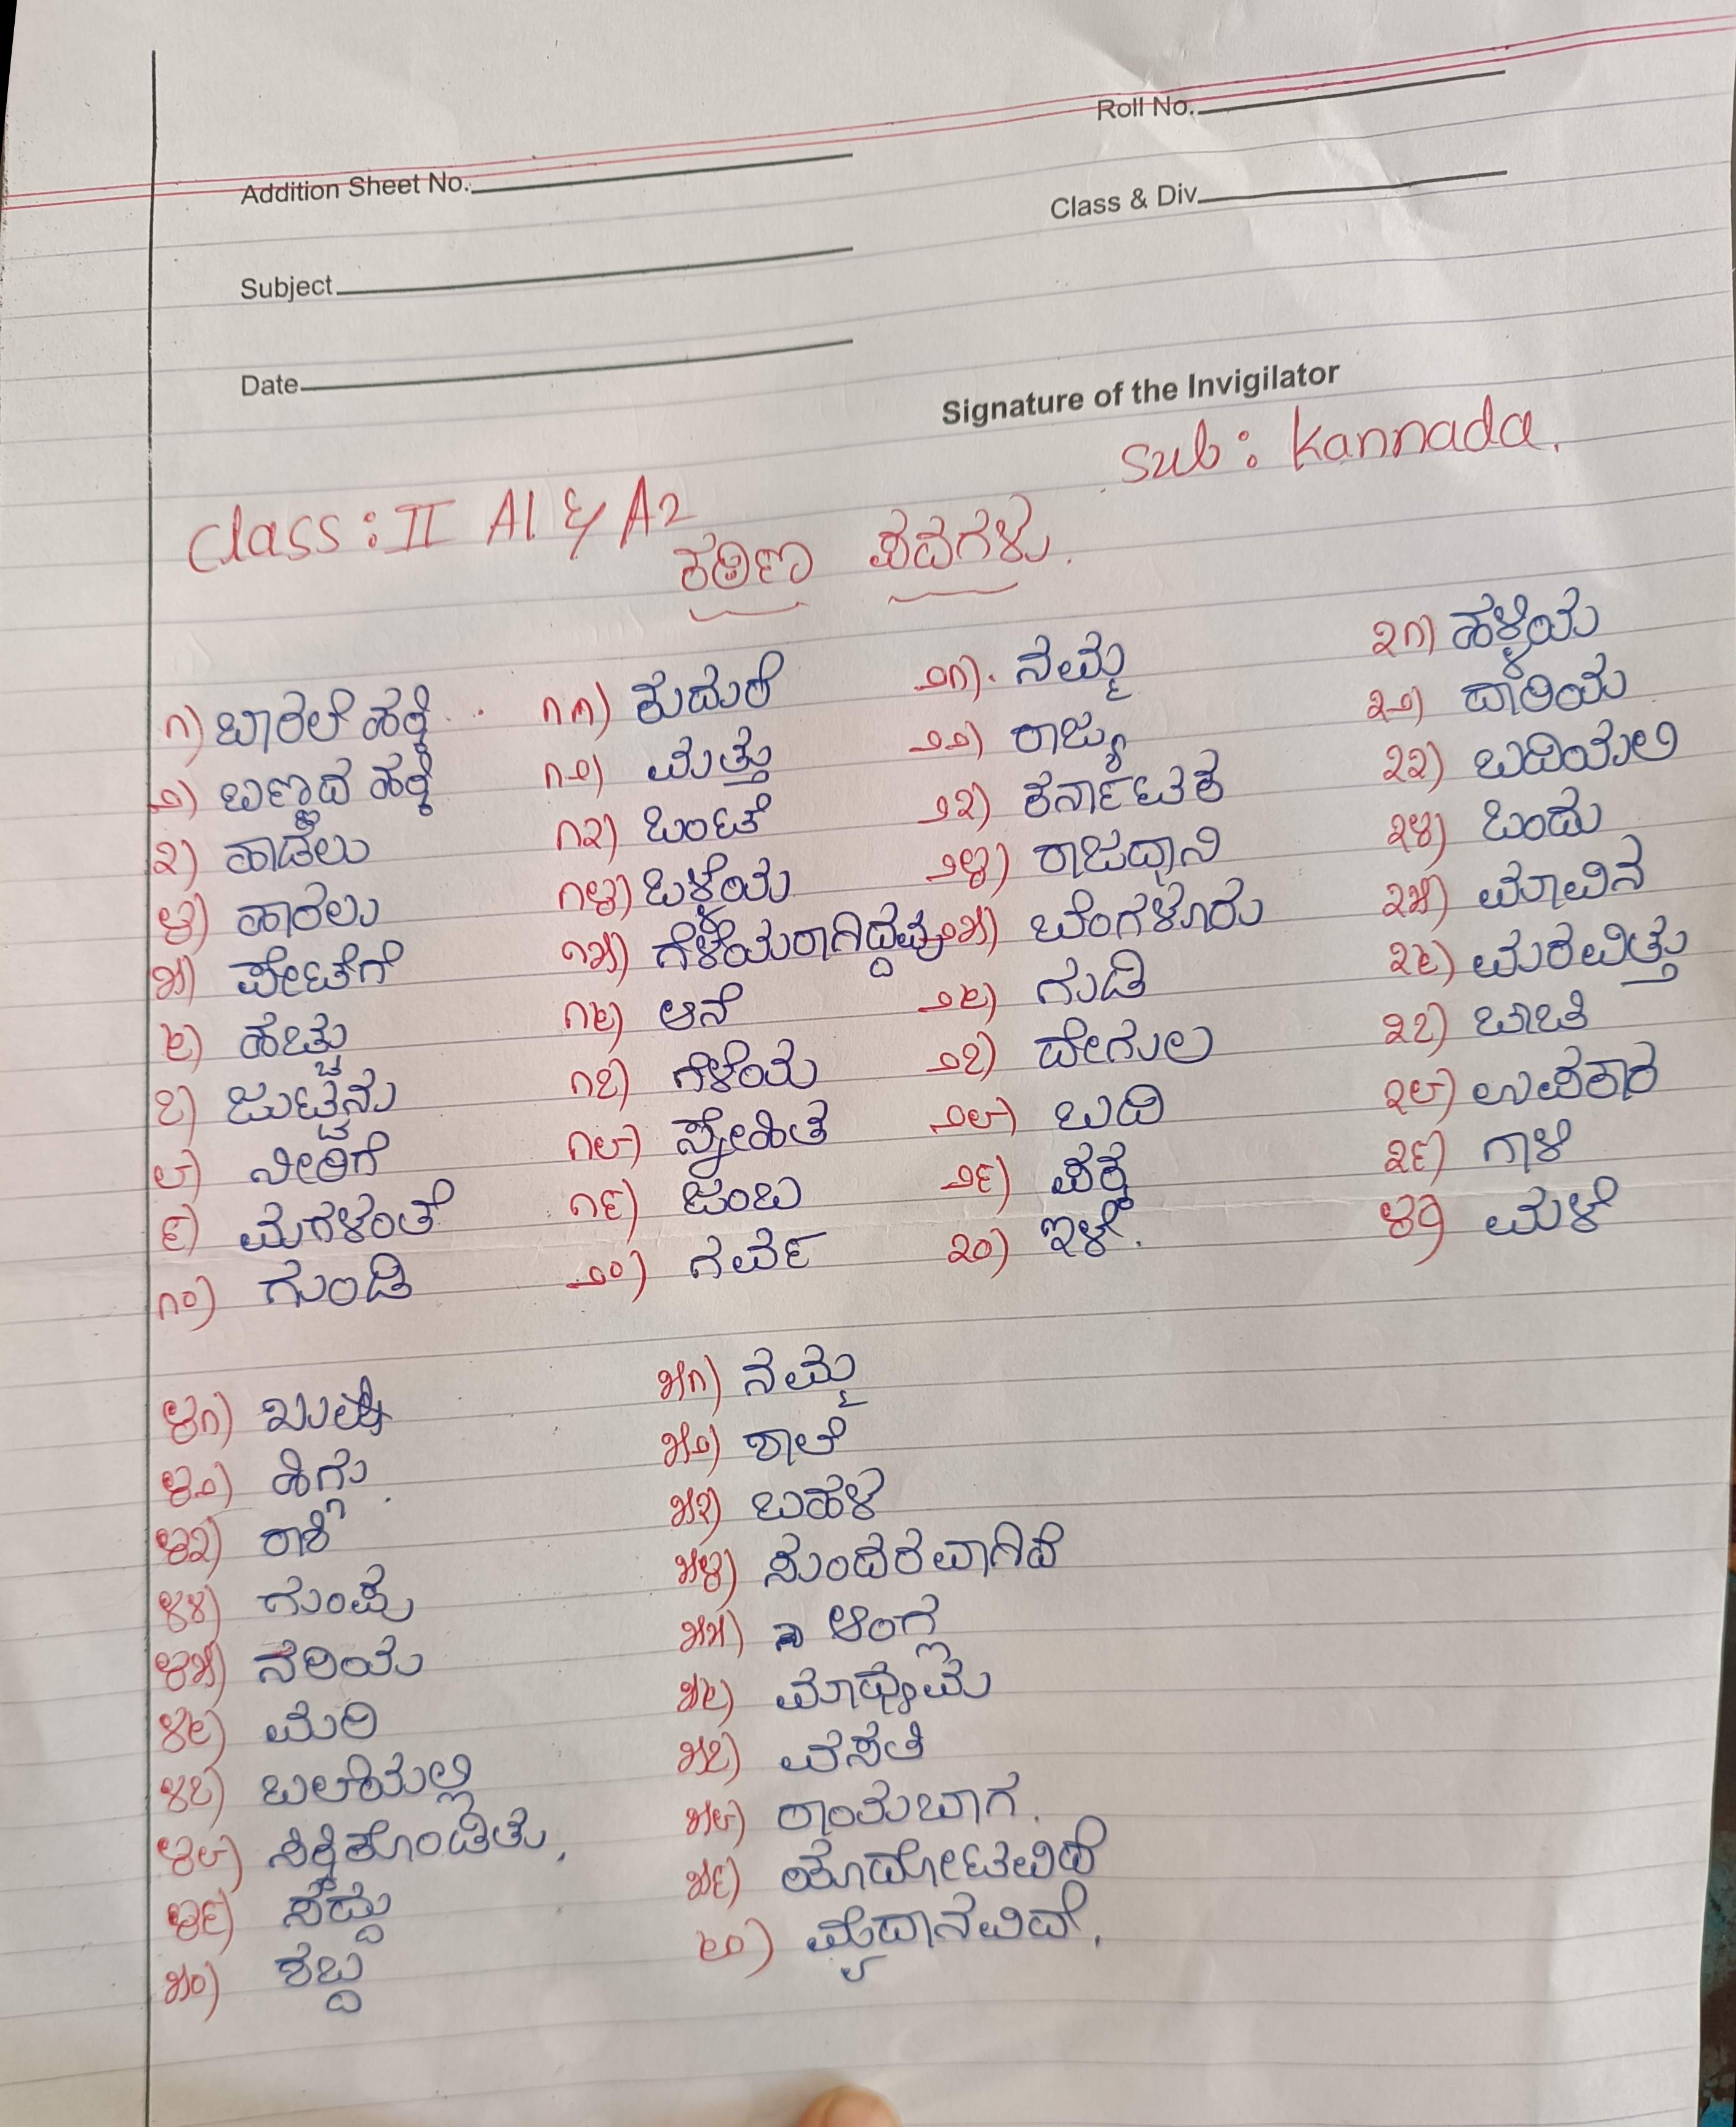 Roll No.
Addition Sheet No.
Class & Div
Subject
Date
Signature of the Invigilator
Sub : Kannada.
Class : II A1 & A2
ಕಠಿಣ ಪದಗಳು.
೧) ಬಾರಲೆ ಹಕ್ಕಿ
೨) ಬಣ್ಣದ ಹಕ್ಕಿ
೩) ಹಾಡಲು
೪) ಹಾರಲು
೫) ಪೇಟೆಗೆ
೬) ಹೆಚ್ಚು
೭) ಜುಟ್ಟನು
೮) ನೀರಿಗೆ
೯) ಮಗಳಂತೆ
೧೦) ಗುಂಡಿ
೧೧) ಕುದುರೆ
೧೨) ಮತ್ತು
೧೩) ಒಂಟೆ
೧೪) ಒಳ್ಳೆಯ
೧೫) ಗೆಳೆಯರಾಗಿದ್ದವು
೧೬) ಆನೆ
೧೭) ಗೆಳೆಯ
೧೮) ಸ್ನೇಹಿತ
೧೯) ಜಂಬ
೨೦) ಗರ್ವ
೨೧). ನಮ್ಮ
೨೨) ರಾಜ್ಯ
೨೩) ಕರ್ನಾಟಕ
೨೪) ರಾಜಧಾನಿ
೨೫) ಬೆಂಗಳೂರು
೨೬) ಗುಡಿ
೨೭) ದೇಗುಲ
೨೮) ಬದಿ
೨೯) ಪಕ್ಕ
೩೦) ಇಳೆ.
೩೧) ಹಳ್ಳಿಯ
೩೨) ದಾರಿಯ
೩೩) ಬದಿಯಲಿ
೩೪) ಒಂದು
೩೫) ಮಾವಿನ
೩೬) ಮರವಿತ್ತು
೩೭) ಬಾಚಿ
೩೮) ಉಪಕಾರ
೩೯) ಗಾಳಿ
೪೦) ಮಳೆ
೪೧) ಖುಷಿ
೪೨) ಹಿಗ್ಗು.
೪೩) ರಾಶಿ
೪೪) ಗುಂಪು
೪೫) ನರಿಯ
೪೬) ಮರಿ
೪೭) ಬಲೆಯಲ್ಲಿ
೪೮) ಸಿಕ್ಕಿಕೊಂಡಿತು.
೪೯) ಸದ್ದು
೫೦) ಶಬ್ದ
೫೧) ನಮ್ಮ
೫೨) ಶಾಲೆ
೫೩) ಬಹಳ
೫೪) ಸುಂದರವಾಗಿದೆ
೫೫) ಆಂಗ್ಲ
೫೬) ಮಾಧ್ಯಮ
೫೭) ವಸತಿ
೫೮) ರಾಯಬಾಗ.
೫೯) ಹೂದೋಟವಿದೆ
೬೦) ಮೈದಾನವಿದೆ.